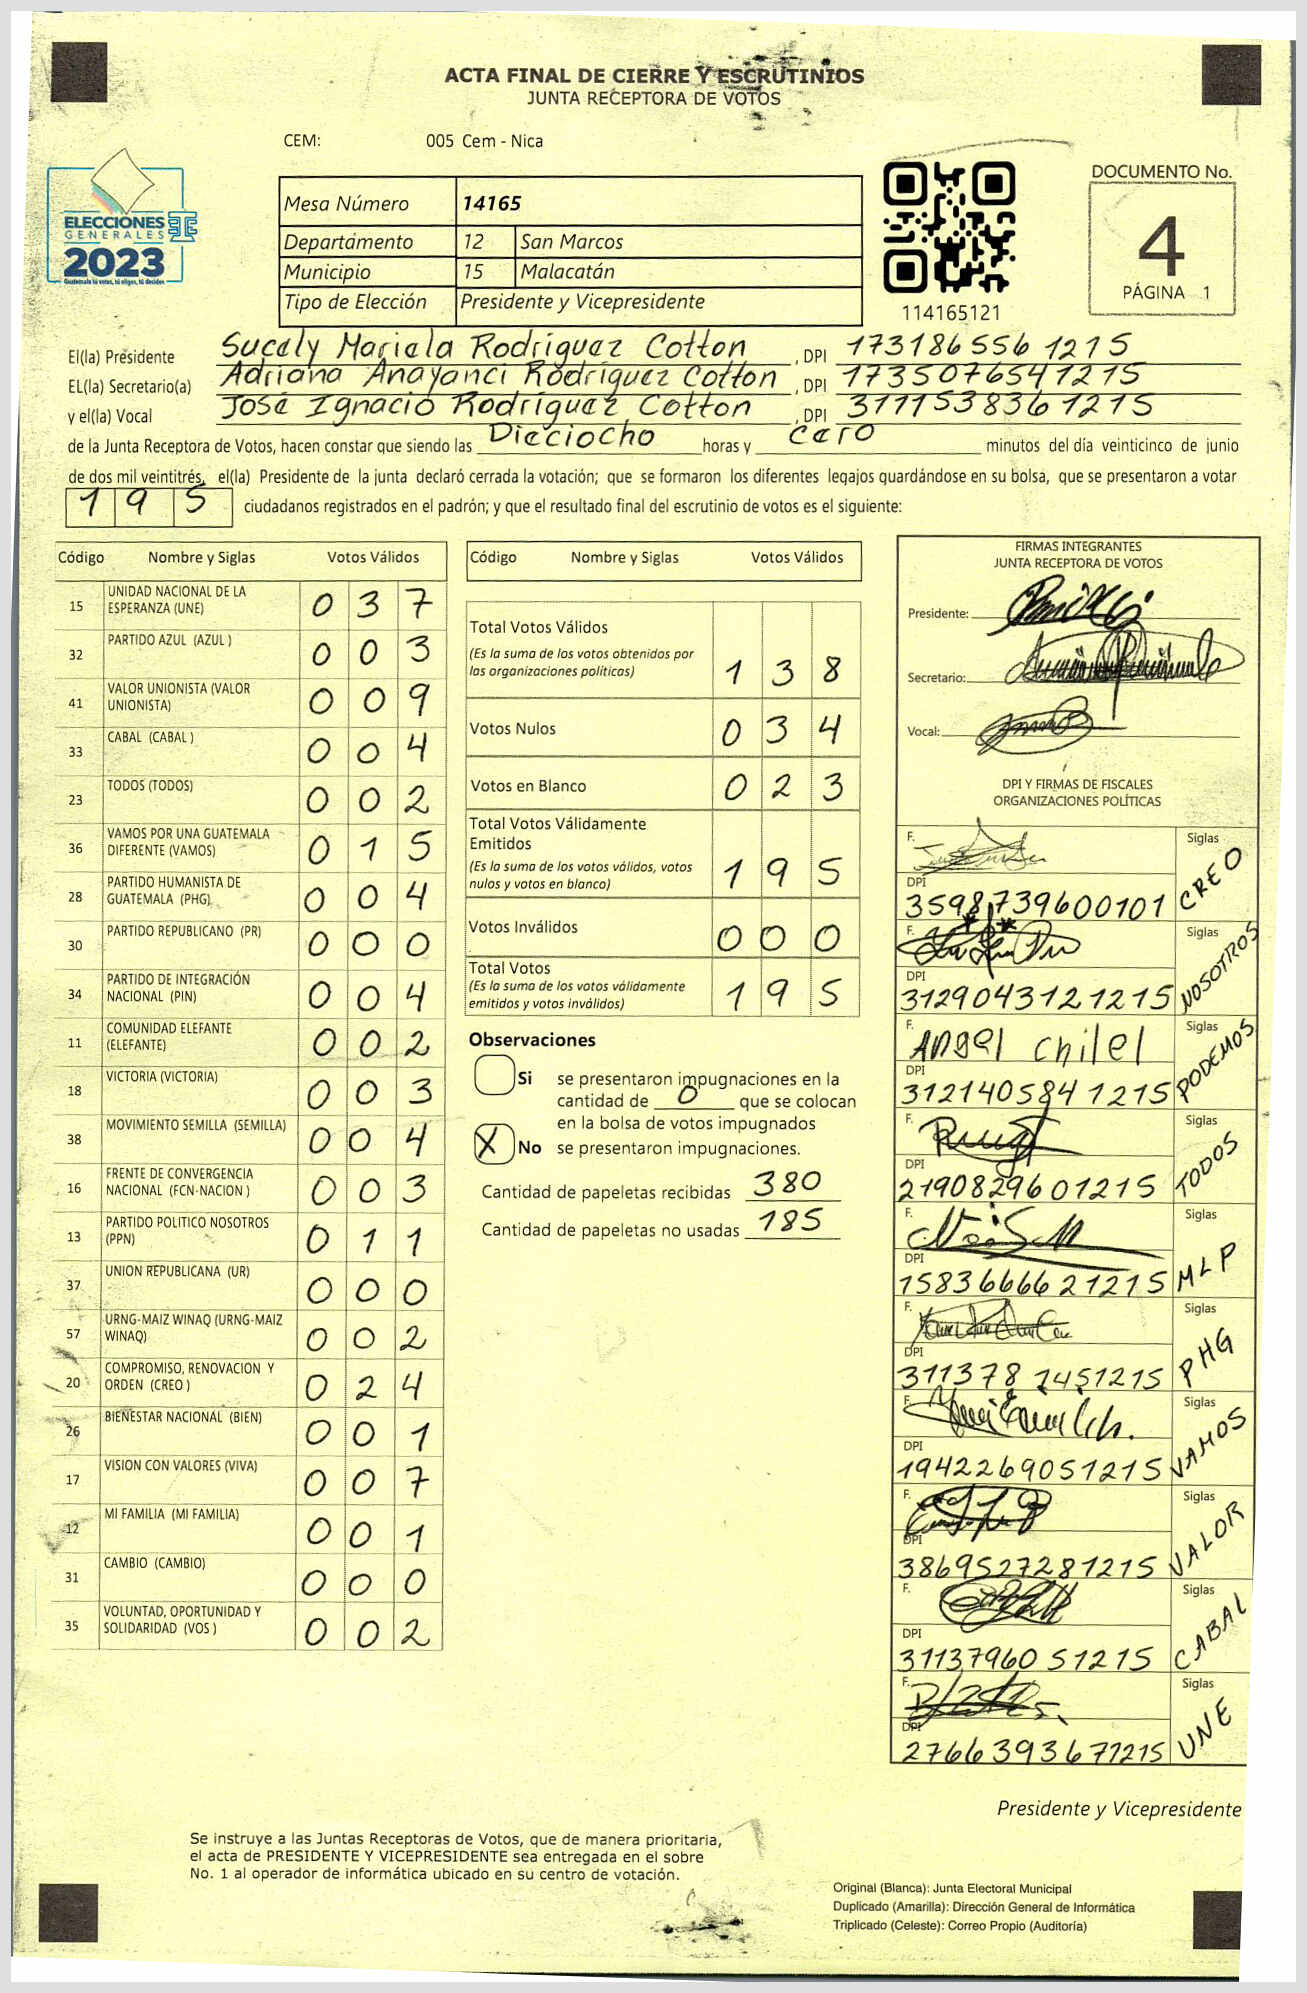 ACTA FINAL DE CIERRE Y ESCRUTINIOS
JUNTA RECEPTORA DE VOTOS
CEM: 005 Cem - Nica
ELECCIONES
GENERALES
2023
Guatemala tú votas, tú eliges, tú decides
Mesa Número 14165
Departamento 12 San Marcos
Municipio 15 Malacatán
Tipo de Elección Presidente y Vicepresidente
114165121
DOCUMENTO No.
4
PÁGINA 1
El(la) Presidente Sucely Mariela Rodríguez Cotton , DPI 173186556 1215
EL(la) Secretario(a) Adriana Anayanci Rodríguez Cotton , DPI 1735076541215
y el(la) Vocal José Ignacio Rodríguez Cotton , DPI 3111538361215
de la Junta Receptora de Votos, hacen constar que siendo las Dieciocho horas y cero minutos del día veinticinco de junio
de dos mil veintitrés, el(la) Presidente de la junta declaró cerrada la votación; que se formaron los diferentes legajos quardándose en su bolsa, que se presentaron a votar
195 ciudadanos registrados en el padrón; y que el resultado final del escrutinio de votos es el siguiente:
Código Nombre y Siglas Votos Válidos
15 UNIDAD NACIONAL DE LA ESPERANZA (UNE) 0 3 7
32 PARTIDO AZUL (AZUL ) 0 0 3
41 VALOR UNIONISTA (VALOR UNIONISTA) 0 0 9
33 CABAL (CABAL ) 0 0 4
23 TODOS (TODOS) 0 0 2
36 VAMOS POR UNA GUATEMALA DIFERENTE (VAMOS) 0 1 5
28 PARTIDO HUMANISTA DE GUATEMALA (PHG) 0 0 4
30 PARTIDO REPUBLICANO (PR) 0 0 0
34 PARTIDO DE INTEGRACIÓN NACIONAL (PIN) 0 0 4
11 COMUNIDAD ELEFANTE (ELEFANTE) 0 0 2
18 VICTORIA (VICTORIA) 0 0 3
38 MOVIMIENTO SEMILLA (SEMILLA) 0 0 4
16 FRENTE DE CONVERGENCIA NACIONAL (FCN-NACION ) 0 0 3
13 PARTIDO POLITICO NOSOTROS (PPN) 0 1 1
37 UNION REPUBLICANA (UR) 0 0 0
57 URNG-MAIZ WINAQ (URNG-MAIZ WINAQ) 0 0 2
20 COMPROMISO, RENOVACION Y ORDEN (CREO ) 0 2 4
26 BIENESTAR NACIONAL (BIEN) 0 0 1
17 VISION CON VALORES (VIVA) 0 0 7
12 MI FAMILIA (MI FAMILIA) 0 0 1
31 CAMBIO (CAMBIO) 0 0 0
35 VOLUNTAD, OPORTUNIDAD Y SOLIDARIDAD (VOS ) 0 0 2
Código Nombre y Siglas Votos Válidos
Total Votos Válidos
(Es la suma de los votos obtenidos por
las organizaciones políticas) 1 3 8
Votos Nulos 0 3 4
Votos en Blanco 0 2 3
Total Votos Válidamente
Emitidos
(Es la suma de los votos válidos, votos
nulos y votos en blanco) 1 9 5
Votos Inválidos 0 0 0
Total Votos
(Es la suma de los votos válidamente
emitidos y votos inválidos) 1 9 5
Observaciones
Si se presentaron impugnaciones en la
cantidad de 0 que se colocan
en la bolsa de votos impugnados
X No se presentaron impugnaciones.
Cantidad de papeletas recibidas 380
Cantidad de papeletas no usadas 185
FIRMAS INTEGRANTES
JUNTA RECEPTORA DE VOTOS
Presidente:
Secretario:
Vocal:
DPI Y FIRMAS DE FISCALES
ORGANIZACIONES POLÍTICAS
F. Siglas CREO
DPI 3598739600101
F. Siglas NOSOTROS
DPI 3129043121215
F. Angel Chilel Siglas PODEMOS
DPI 312140584 1215
F. Siglas TODOS
DPI 2190829601215
F. Siglas MLP
DPI 1583666621215
F. Siglas PHG
DPI 311378 7451215
F. Siglas VAMOS
DPI 1942269051215
F. Siglas VALOR
DPI 3869527281215
F. Siglas CABAL
DPI 31137960 51215
F. Siglas UNE
DPI 2766393671215
Presidente y Vicepresidente
Se instruye a las Juntas Receptoras de Votos, que de manera prioritaria,
el acta de PRESIDENTE Y VICEPRESIDENTE sea entregada en el sobre
No. 1 al operador de informática ubicado en su centro de votación.
Original (Blanca): Junta Electoral Municipal
Duplicado (Amarilla): Dirección General de Informática
Triplicado (Celeste): Correo Propio (Auditoría)